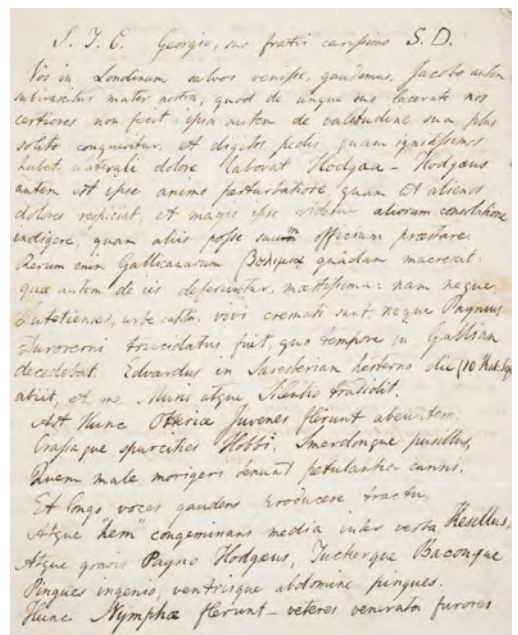 S. T. C. Georgio, suo fratri carissimo S. D.
Vos in Londinum salvos venisse, gaudemus. Jacobo autem
subirascitur mater nostra, quod de ungue suo lacerato nos
certiores non fecit: ipsa autem de valitudine sua, plus
solito conqueritur, et digitos pedis, quam ignitissimos
habet. laterali dolore laborat Hodgæa – Hodgæus
autem est ipse animo perturbatiore, quam ut alienos
dolores respiciat, et magis ipse videtur aliorum consolatione
indigere, quam aliis posse suum officium præstare.
Rerum enim Gallicanarum quâdam macrescit:
quæ autem de iis deferuntur, mæstissima: nam neque
Lutetienses, urbe captâ, vivi cremati sunt, neque Paynius
Duroverni trucidatus fuit, quo tempore in Galliam
decedebat. Edvardus in Saresberiam hesterno die (10 Kal. Sep
abiit, et me Muris atque Silentio tradidit.
Ast Hunc Otteriæ Juvenes flerunt abeuntem:
Crassaque spurcities Hobbi, Smerdonque pusillus,
Quem male morigeri tenuat petulantia cunni,
Et longo voces gaudens producere tractu,
Atque "hem" congeminans media inter verba Kesellus,
Atque gravis Payno Hodgeus, Tuckerque Baconque
Pingues ingenio, ventrisque abdomine pingues.
Hunc Nymphæ flerunt – veteres venerata furores